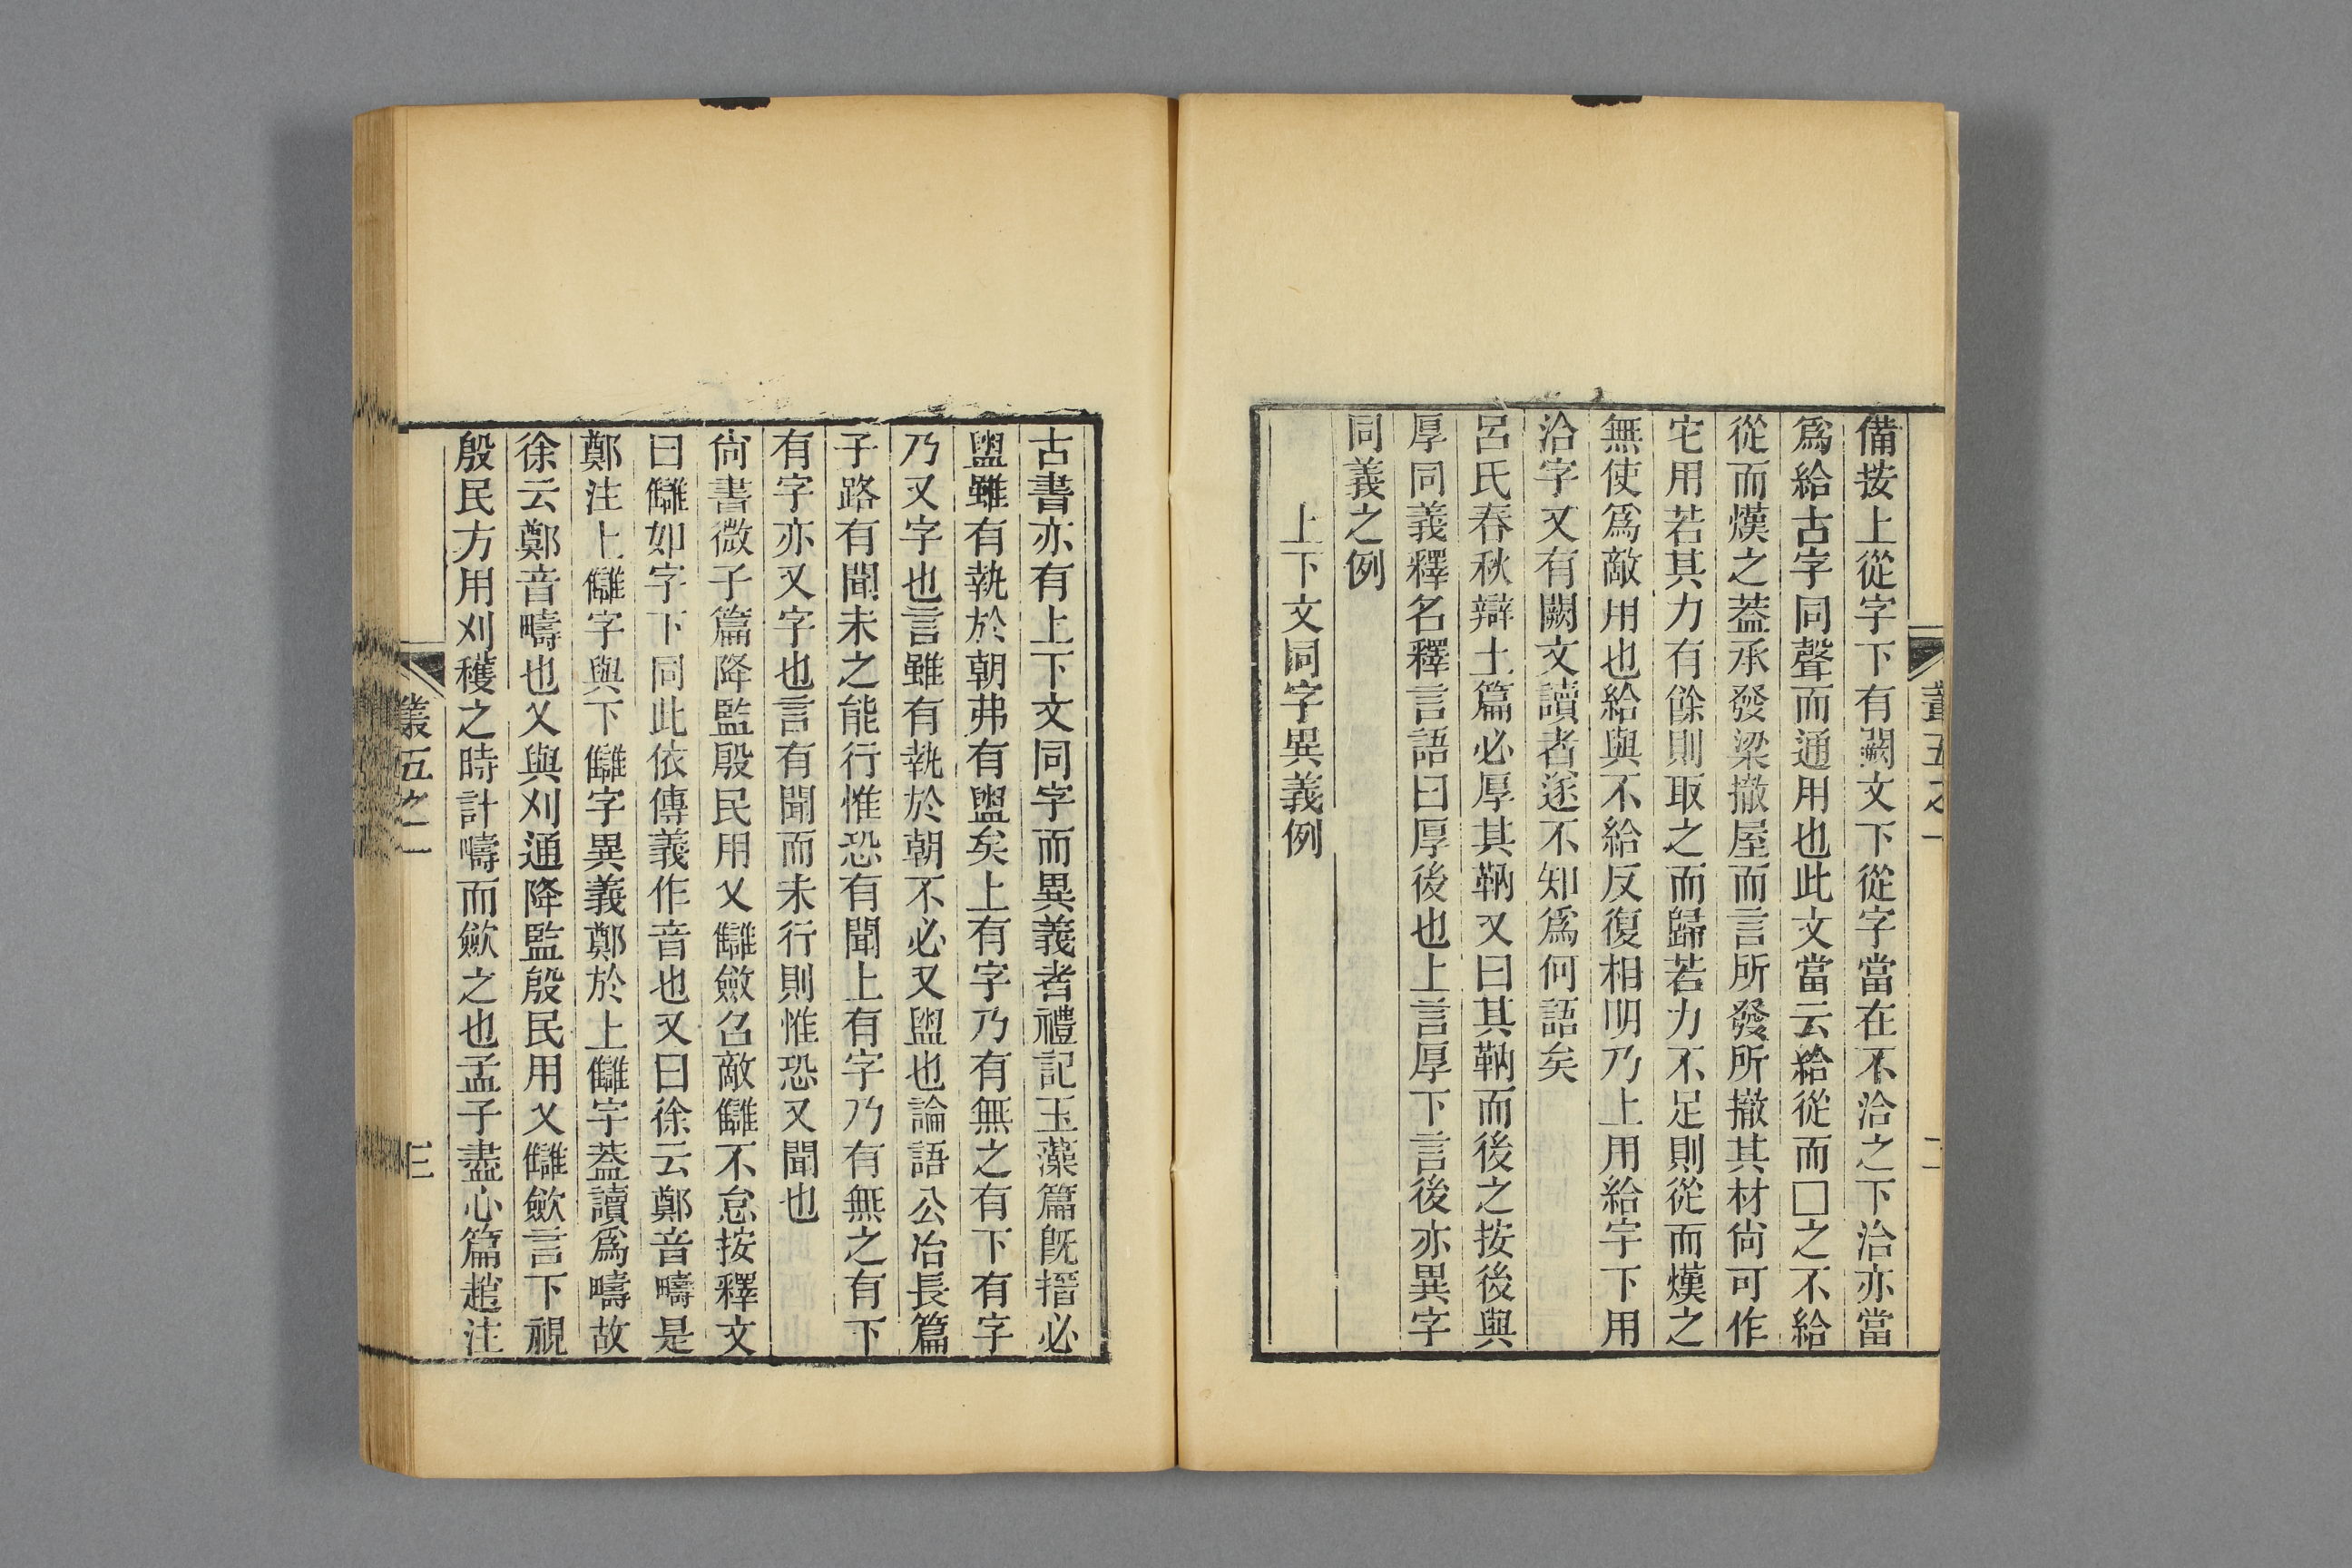 備按上從字下有闕文下從字當在不洽之下洽亦當
爲給古字同聲而通用也此文當云給從而□之不給
從而熯之葢承發梁撤屋而言所發所撤其材尙可作
宅用若其力有餘則取之而歸若力不足則從而熯之
無使爲敵用也給與不給反復相明乃上用給字下用
洽字又有闕文讀者遂不知爲何語矣
呂氏春秋辯土篇必厚其靹又曰其靹而後之按後與
厚同義釋名釋言語曰厚後也上言厚下言後亦異字
同義之例
上下文同字異義例
古書亦有上下文同字而異義者禮記玉藻篇旣搢必
盥雖有執於朝弗有盥矣上有字乃有無之有下有字
乃又字也言雖有執於朝不必又盥也論語公冶長篇
子路有聞未之能行惟恐有聞上有字乃有無之有下
有字亦又字也言有聞而未行則惟恐又聞也
尙書微子篇降監殷民用乂讎斂召敵讎不怠按釋文
曰讎如字下同此依傳義作音也又曰徐云鄭音疇是
鄭注上讎字與下讎字異義鄭於上讎字葢讀爲疇故
徐云鄭音疇也乂與刈通降監殷民用乂讎斂言下視
殷民方用刈穫之時計疇而斂之也孟子盡心篇趙注
叢五之一
三